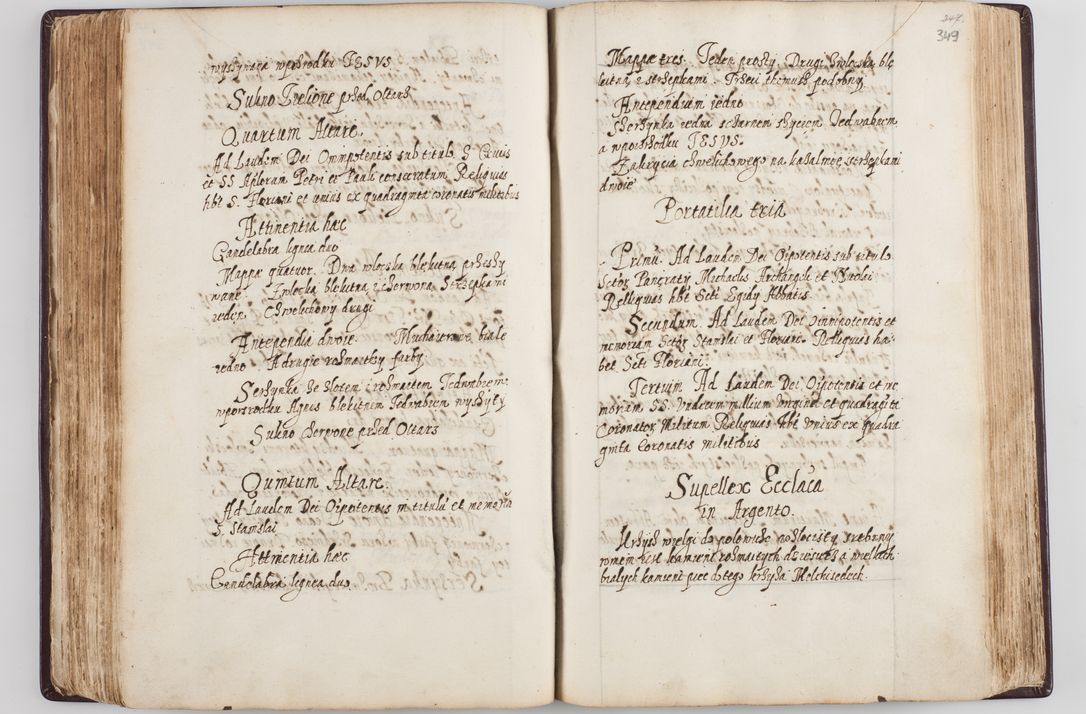 wyszywana wposrodku IESVS
Sukno Zielione przed Oltarz
Quartum Altare.
Ad Laudem Dei Omnipotentis sub titulo S Crucis
et SS Aplorum Petri et Pauli consecratum Reliquias
hbt S. Floriani et unius ex quadraginta coronatis militibus
Attinentia haec
Candelabra lignea duo
Mappae quatuor. Dwa wloczka blekitna przeszy
wane. Zwloczka blekitna z czerwona Strzepkami
ieden. Czwelichowy drugi
Antependia dwoie. Muchaierowe biale
iedno A drugie rozmaitey farby
Serzynka Ze Zlotem z rozmaitem Iedwabiem
wposrzodku Agnus blekitnem Iedwabiem wyszyty
Sukno Czerwone przed Oltarz
Quintum Altare.
Ad Laudem Dei Oipotentis in titulu et memoria
S. Stanislai
Attinentia haec
Candelabra lignea duo
247.
349
Mappae tres. Ieden prosty. Drugi Zwloczka ble
kitna z strzepkami. Trzeci themusz podobny
Antependium iedno
Sserzynka iedna sczarnem szyciem Iedwabnem
a wposrzodku IESVS.
Zakrycia Czwelichowego na kazalnice strzepkami
dwoie
Portatilia tria
Primu Ad Laudem Dei Oipotentis sub titulo
Sctor Pancraty Michaelis Archangeli et Nicolai
Relliquias hbt Scti Egidy Abbatis.
Secundum. Ad Laudem Dei Omnipotentis et
memoriam Sctor Stanislai et Floriani. Relliquias ha-
bet Scti Floriani.
Tertium Ad Laudem Dei Oipotentis et me
moriam SS. Vndecem millium Virginu et quadraginta
Coronator Militum Reliquias hbt Vnius ex quadra
ginta Coronatis militibus
Supellex Ecclaca
in Argento.
Krzysz wielgi do polowice pozlocisty srebrny
wnem iest kamieni rozmaitych dziewiec a wielkich
bialych kamieni piec do tego krzyza Melchisedech.